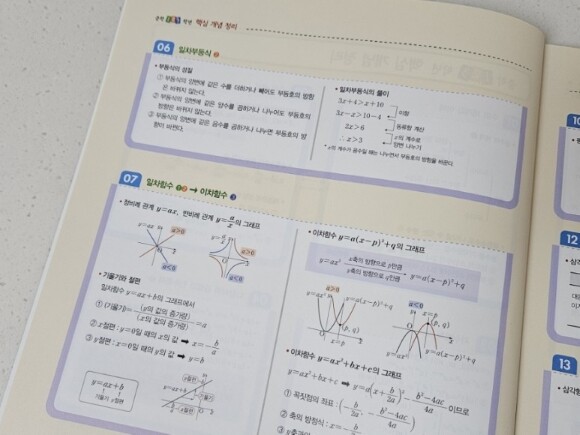 핵심 개념 정리
06 일차부등식 ❷
• 부등식의 성질
① 부등식의 양변에 같은 수를 더하거나 빼어도 부등호의 방향
은 바뀌지 않는다.
② 부등식의 양변에 같은 양수를 곱하거나 나누어도 부등호의
방향은 바뀌지 않는다.
③ 부등식의 양변에 같은 음수를 곱하거나 나누면 부등호의 방
향이 바뀐다.
• 일차부등식의 풀이
3x+4>x+10
이항
3x-x>10-4
동류항 계산
2x>6
x의 계수로
양변 나누기
∴ x>3
* x의 계수가 음수일 때는 나누면서 부등호의 방향을 바꾼다.
07 일차함수 ❶❷ ➡ 이차함수 ❸
• 정비례 관계 y=ax, 반비례 관계 y=a/x의 그래프
y=ax
a>0
a<0
y=a/x
a>0
a<0
• 기울기와 절편
일차함수 y=ax+b의 그래프에서
① (기울기)=(y의 값의 증가량)/(x의 값의 증가량)=a
② x절편 : y=0일 때의 x의 값 ➡ x=-b/a
③ y절편 : x=0일 때의 y의 값 ➡ y=b
y=ax+b
기울기 y절편
y절편
기울기
x절편
• 이차함수 y=a(x-p)²+q의 그래프
y=ax² x축의 방향으로 p만큼 y축의 방향으로 q만큼 y=a(x-p)²+q
a>0
y=ax²
y=a(x-p)²+q
(p, q)
a<0
(p, q)
• 이차함수 y=ax²+bx+c의 그래프
y=ax²+bx+c ➡ y=a(x+b/2a)²-(b²-4ac)/4a 이므로
① 꼭짓점의 좌표 : (-b/2a, -(b²-4ac)/4a)
② 축의 방정식 : x=-b/2a
10
12
13